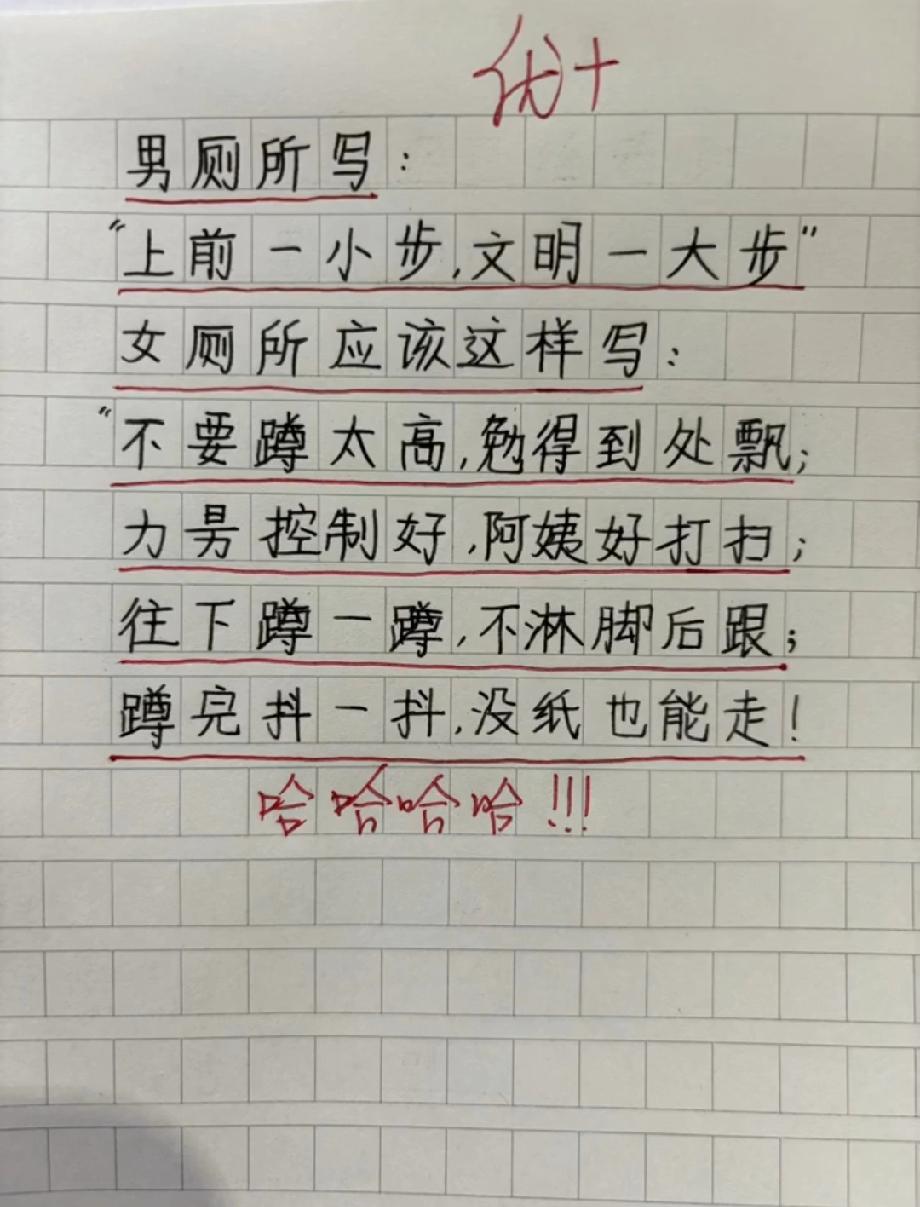 优+
男厕所写：
“上前一小步,文明一大步”
女厕所应该这样写：
“不要蹲太高,勉得到处飘;
力另控制好,阿姨好打扫;
往下蹲一蹲,不淋脚后跟;
蹲完抖一抖,没纸也能走!
哈哈哈哈!!!